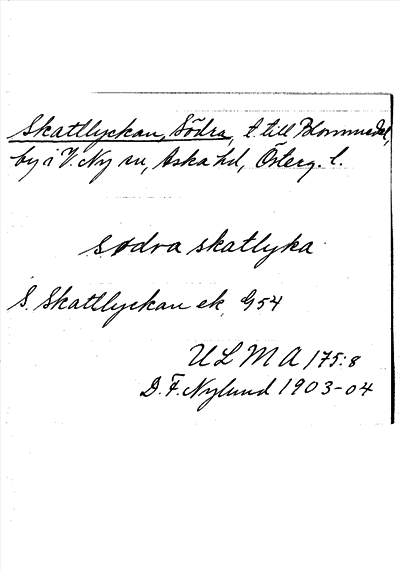 Skattlyckan, Södra, t. till Blommedal,
by i V. Ny sn, Aska hd, Österg. l.
södra skatlyka
S. Skattlyckan ek. G54
ULMA 175:8
D. F. Nylund 1903-04